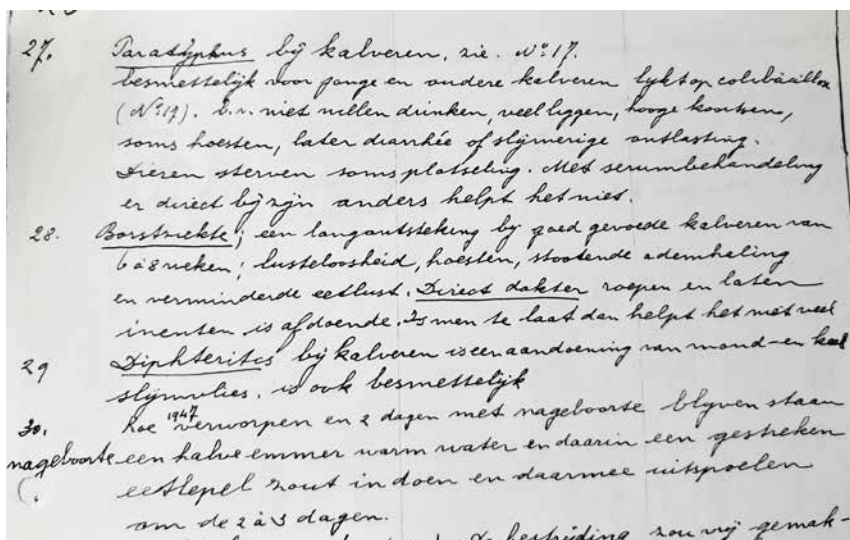 27. Paratyphus bij kalveren, zie. No 17.
besmettelijk voor jonge en oudere kalveren lykt op colibacillox
(No 17). b.v. niet willen drinken, veel liggen, hooge koortsen,
soms hoesten, later diarrhée of slijmerige ontlasting.
Dieren sterven soms plotseling. Met serumbehandeling
er direct bij zijn anders helpt het niet.
28. Borstziekte; een longontsteking by goed gevoede kalveren van
6 à 8 weken; lusteloosheid, hoesten, stootende ademhaling
en verminderde eetlust. Direct dokter roepen en laten
inenten is afdoende. Is men te laat dan helpt het niet veel
29 Diphteritis bij kalveren is een aandoening van mond- en keel
slijmvlies. is ook besmettelijk
30. Koe 1947 verworpen en 2 dagen met nageboorte blyven staan
nageboorte een halve emmer warm water en daarin een gestreken
eetlepel zout in doen en daarmee uitspoelen
om de 2 à 3 dagen.
bestrijding zou vrij gemak-